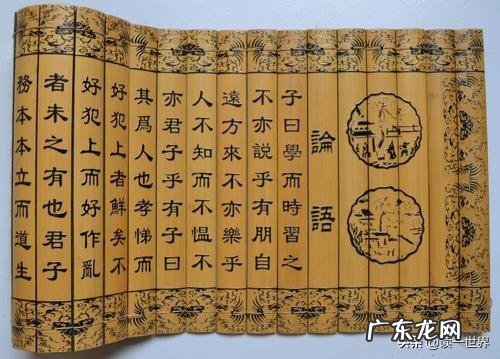 論語
子曰學而時習之
不亦説乎有朋自
遠方來不亦樂乎
人不知而不愠不
亦君子乎有子曰
其爲人也孝悌而
好犯上者鮮矣不
好犯上而好作亂
者未之有也君子
務本本立而道生
广东龙网